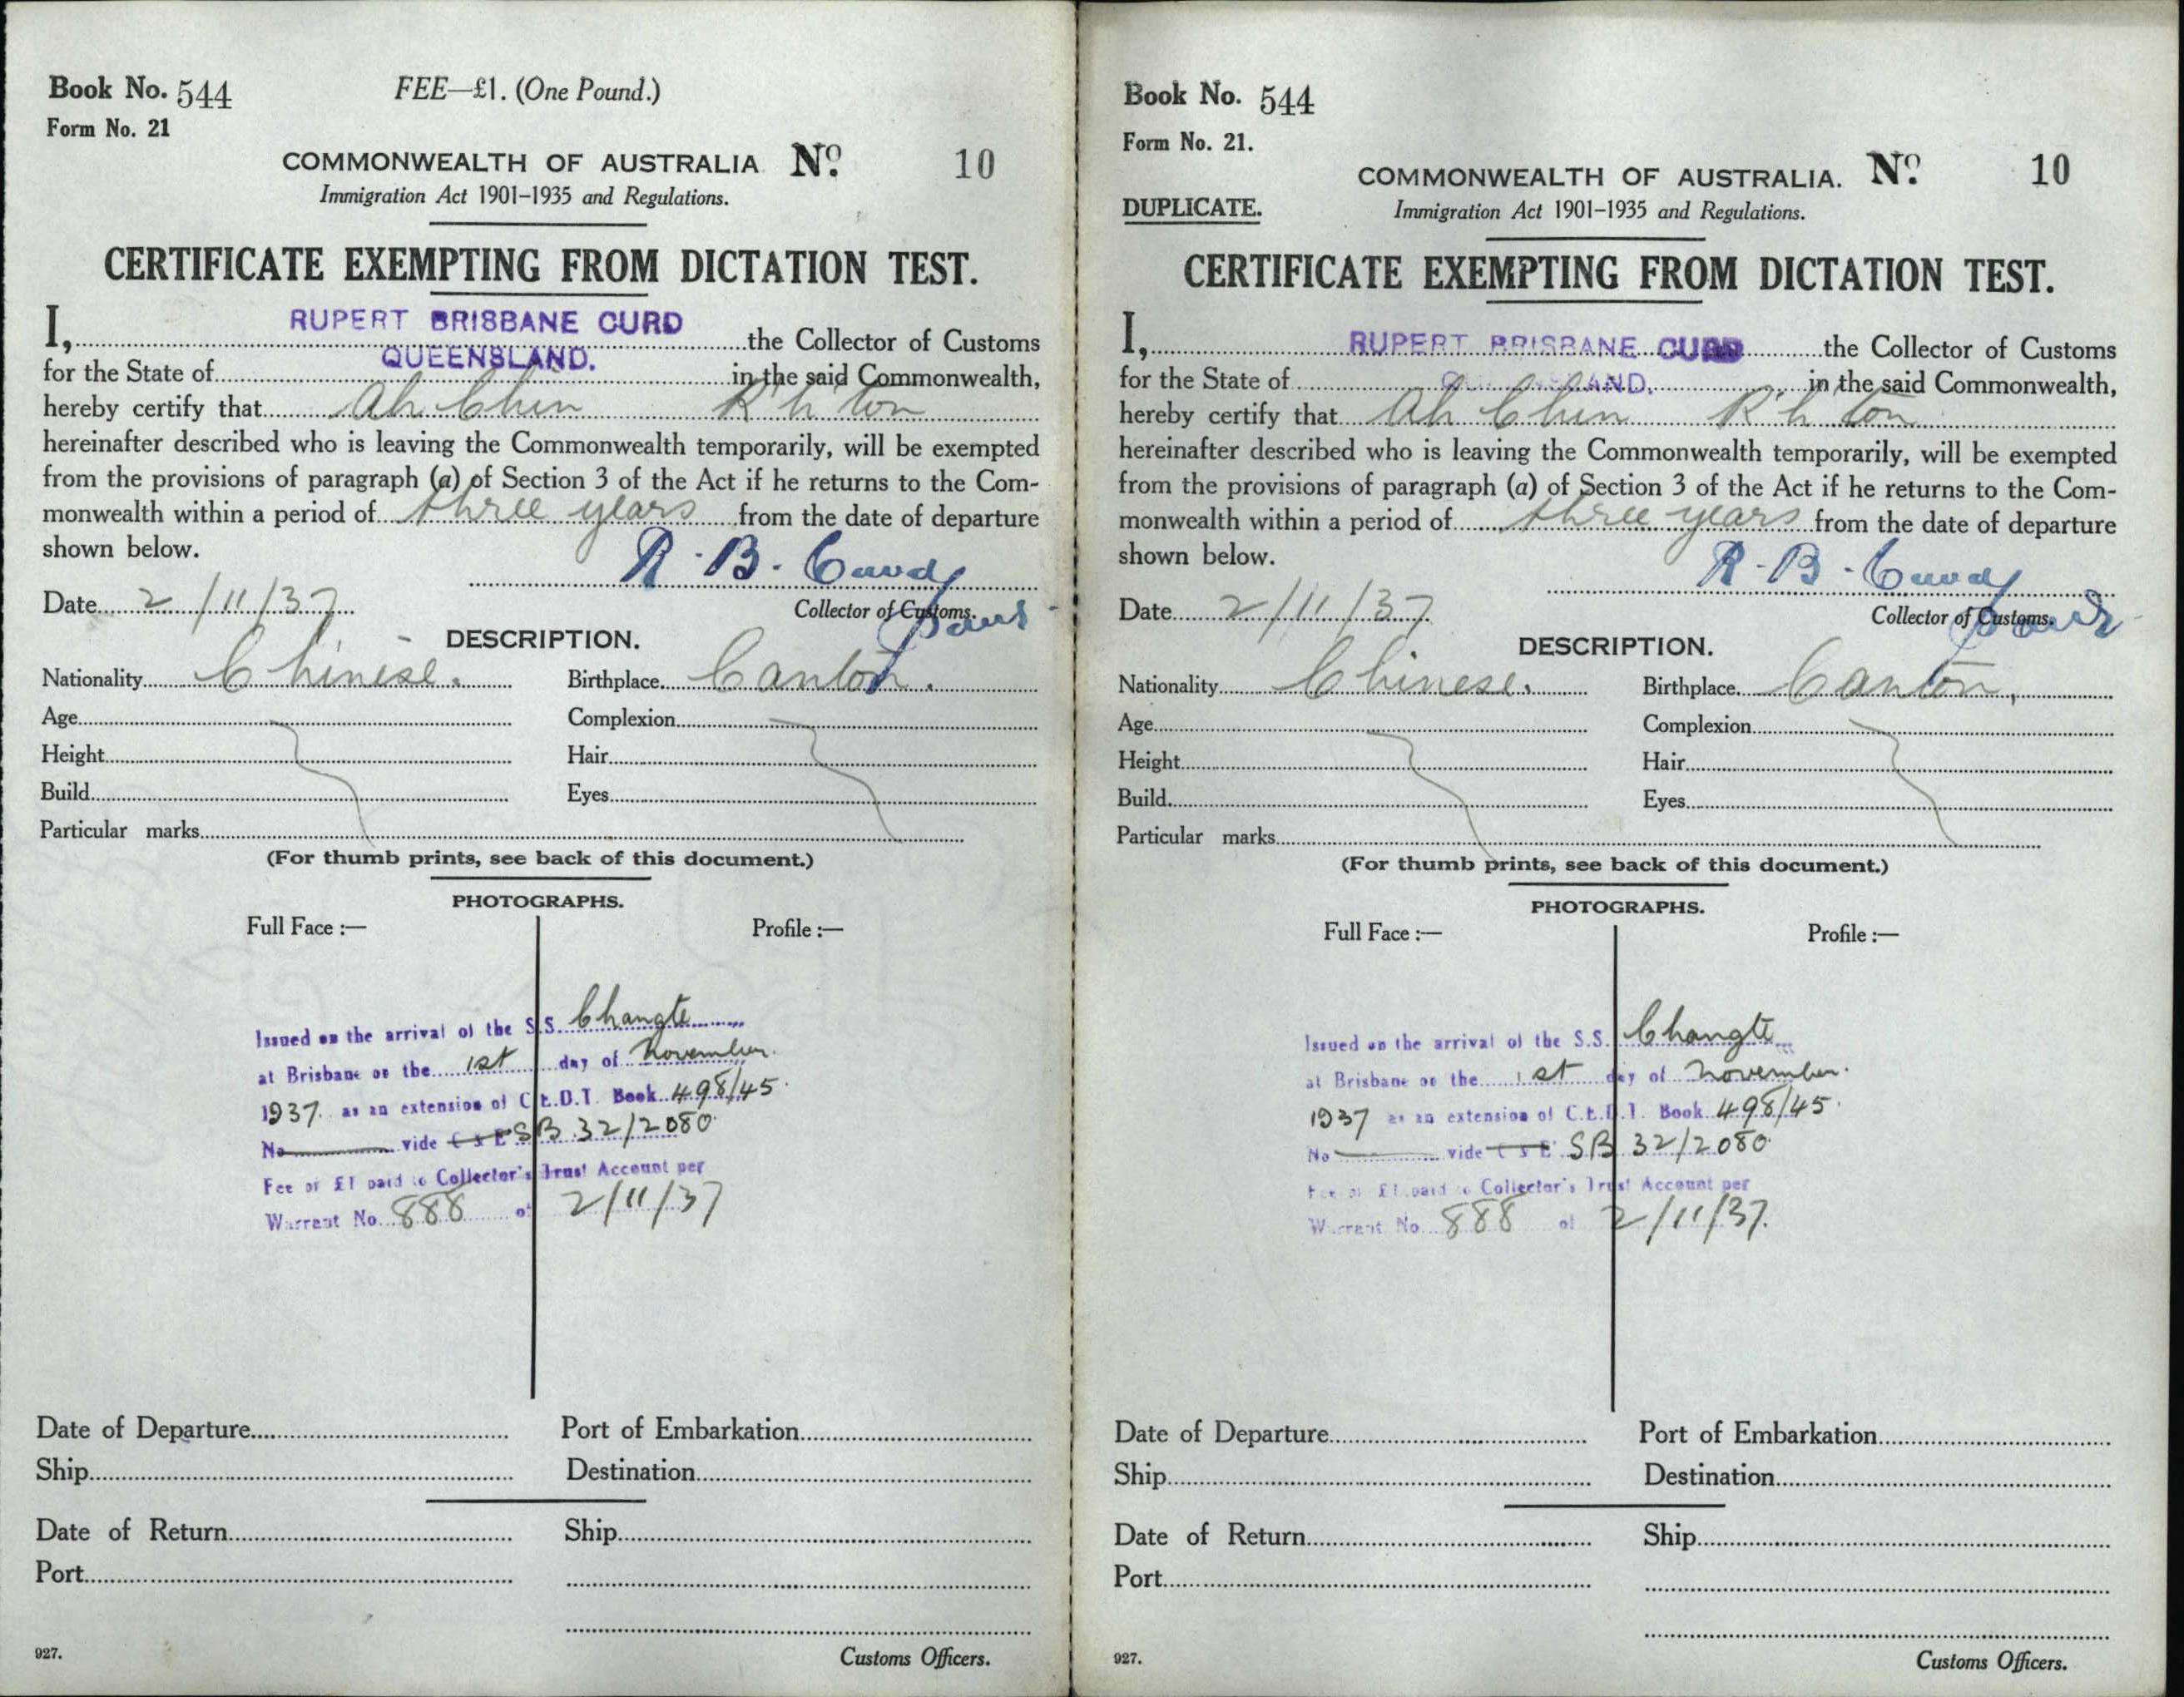 Book No. 544
FEE—£1. (One Pound.)
Form No. 21
COMMONWEALTH OF AUSTRALIA No. 10
Immigration Act 1901–1935 and Regulations.
CERTIFICATE EXEMPTING FROM DICTATION TEST.
I, RUPERT BRISBANE CURD the Collector of Customs
for the State of QUEENSLAND. in the said Commonwealth,
hereby certify that Ah Chin R'h'ton
hereinafter described who is leaving the Commonwealth temporarily, will be exempted
from the provisions of paragraph (a) of Section 3 of the Act if he returns to the Com-
monwealth within a period of three years from the date of departure
shown below.
R. B. Curd
Date 2/11/37
Collector of Customs.
DESCRIPTION.
Nationality Chinese. Birthplace Canton.
Age Complexion
Height Hair
Build Eyes
Particular marks
(For thumb prints, see back of this document.)
PHOTOGRAPHS.
Full Face :— Profile :—
Issued on the arrival of the S.S. Changte
at Brisbane on the 1st day of November
1937 as an extension of C.E.D.T. Book 498/45.
No vide C & E SB 32/2080
Fee of £1 paid to Collector's Trust Account per
Warrant No. 888 of 2/11/37
Date of Departure Port of Embarkation
Ship Destination
Date of Return Ship
Port
927.
Customs Officers.
Book No. 544
Form No. 21.
COMMONWEALTH OF AUSTRALIA. No. 10
DUPLICATE.
Immigration Act 1901–1935 and Regulations.
CERTIFICATE EXEMPTING FROM DICTATION TEST.
I, RUPERT BRISBANE CURD the Collector of Customs
for the State of QUEENSLAND. in the said Commonwealth,
hereby certify that Ah Chin R'h'ton
hereinafter described who is leaving the Commonwealth temporarily, will be exempted
from the provisions of paragraph (a) of Section 3 of the Act if he returns to the Com-
monwealth within a period of three years from the date of departure
shown below.
R. B. Curd
Date 2/11/37
Collector of Customs.
DESCRIPTION.
Nationality Chinese. Birthplace Canton,
Age Complexion
Height Hair
Build Eyes
Particular marks
(For thumb prints, see back of this document.)
PHOTOGRAPHS.
Full Face :— Profile :—
Issued on the arrival of the S.S. Changte
at Brisbane on the 1st day of November.
1937 as an extension of C.E.D.T. Book 498/45.
No vide C & E SB 32/2080
Fee of £1 paid to Collector's Trust Account per
Warrant No. 888 of 2/11/37.
Date of Departure Port of Embarkation
Ship Destination
Date of Return Ship
Port
927.
Customs Officers.